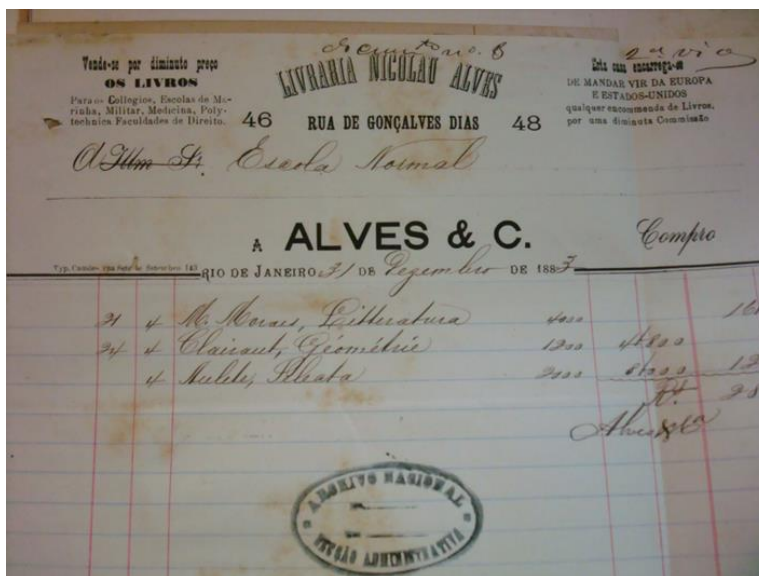 Documto no. 8
2ª via
Vende-se por diminuto preço
OS LIVROS
Para os Collegios, Escolas de Ma-
rinha, Militar, Medicina, Poly-
technica Faculdades de Direito.
LIVRARIA NICOLAU ALVES
46 RUA DE GONÇALVES DIAS 48
Esta casa encarrega-se
DE MANDAR VIR DA EUROPA
E ESTADOS-UNIDOS
qualquer encommenda de Livros,
por uma diminuta Commissão
A Illm Sr. Escola Normal
A ALVES & C. Compro
RIO DE JANEIRO 31 DE Dezembro DE 1883
21 4 M. Moraes, Litteratura 4000
24 4 Clairaut, Géométrie 1200 4800
4 Aulete, Seleata 2000
Alves & C
ARCHIVO NACIONAL
SECÇÃO ADMINISTRATIVA